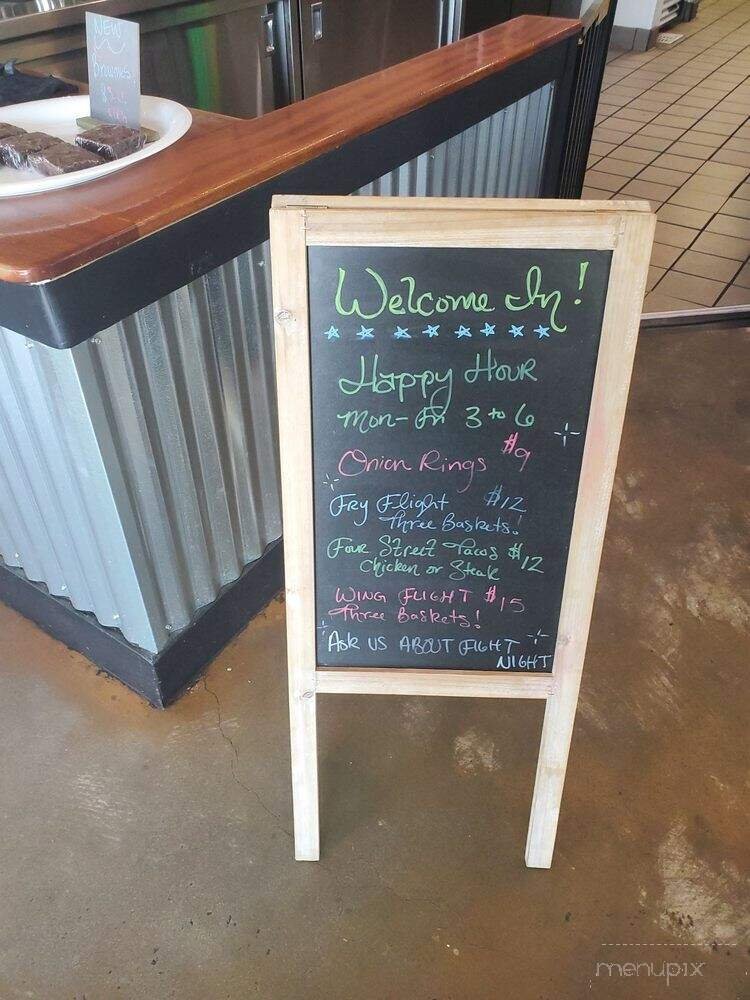 NEW
Brownies
Welcome In!
Happy Hour
Mon-Fri 3 to 6
Onion Rings $9
Fry Flight $12
Three Baskets!
Four Street Tacos $12
Chicken or Steak
WING FLIGHT $15
Three Baskets!
Ask US ABOUT FIGHT
NIGHT
menupix